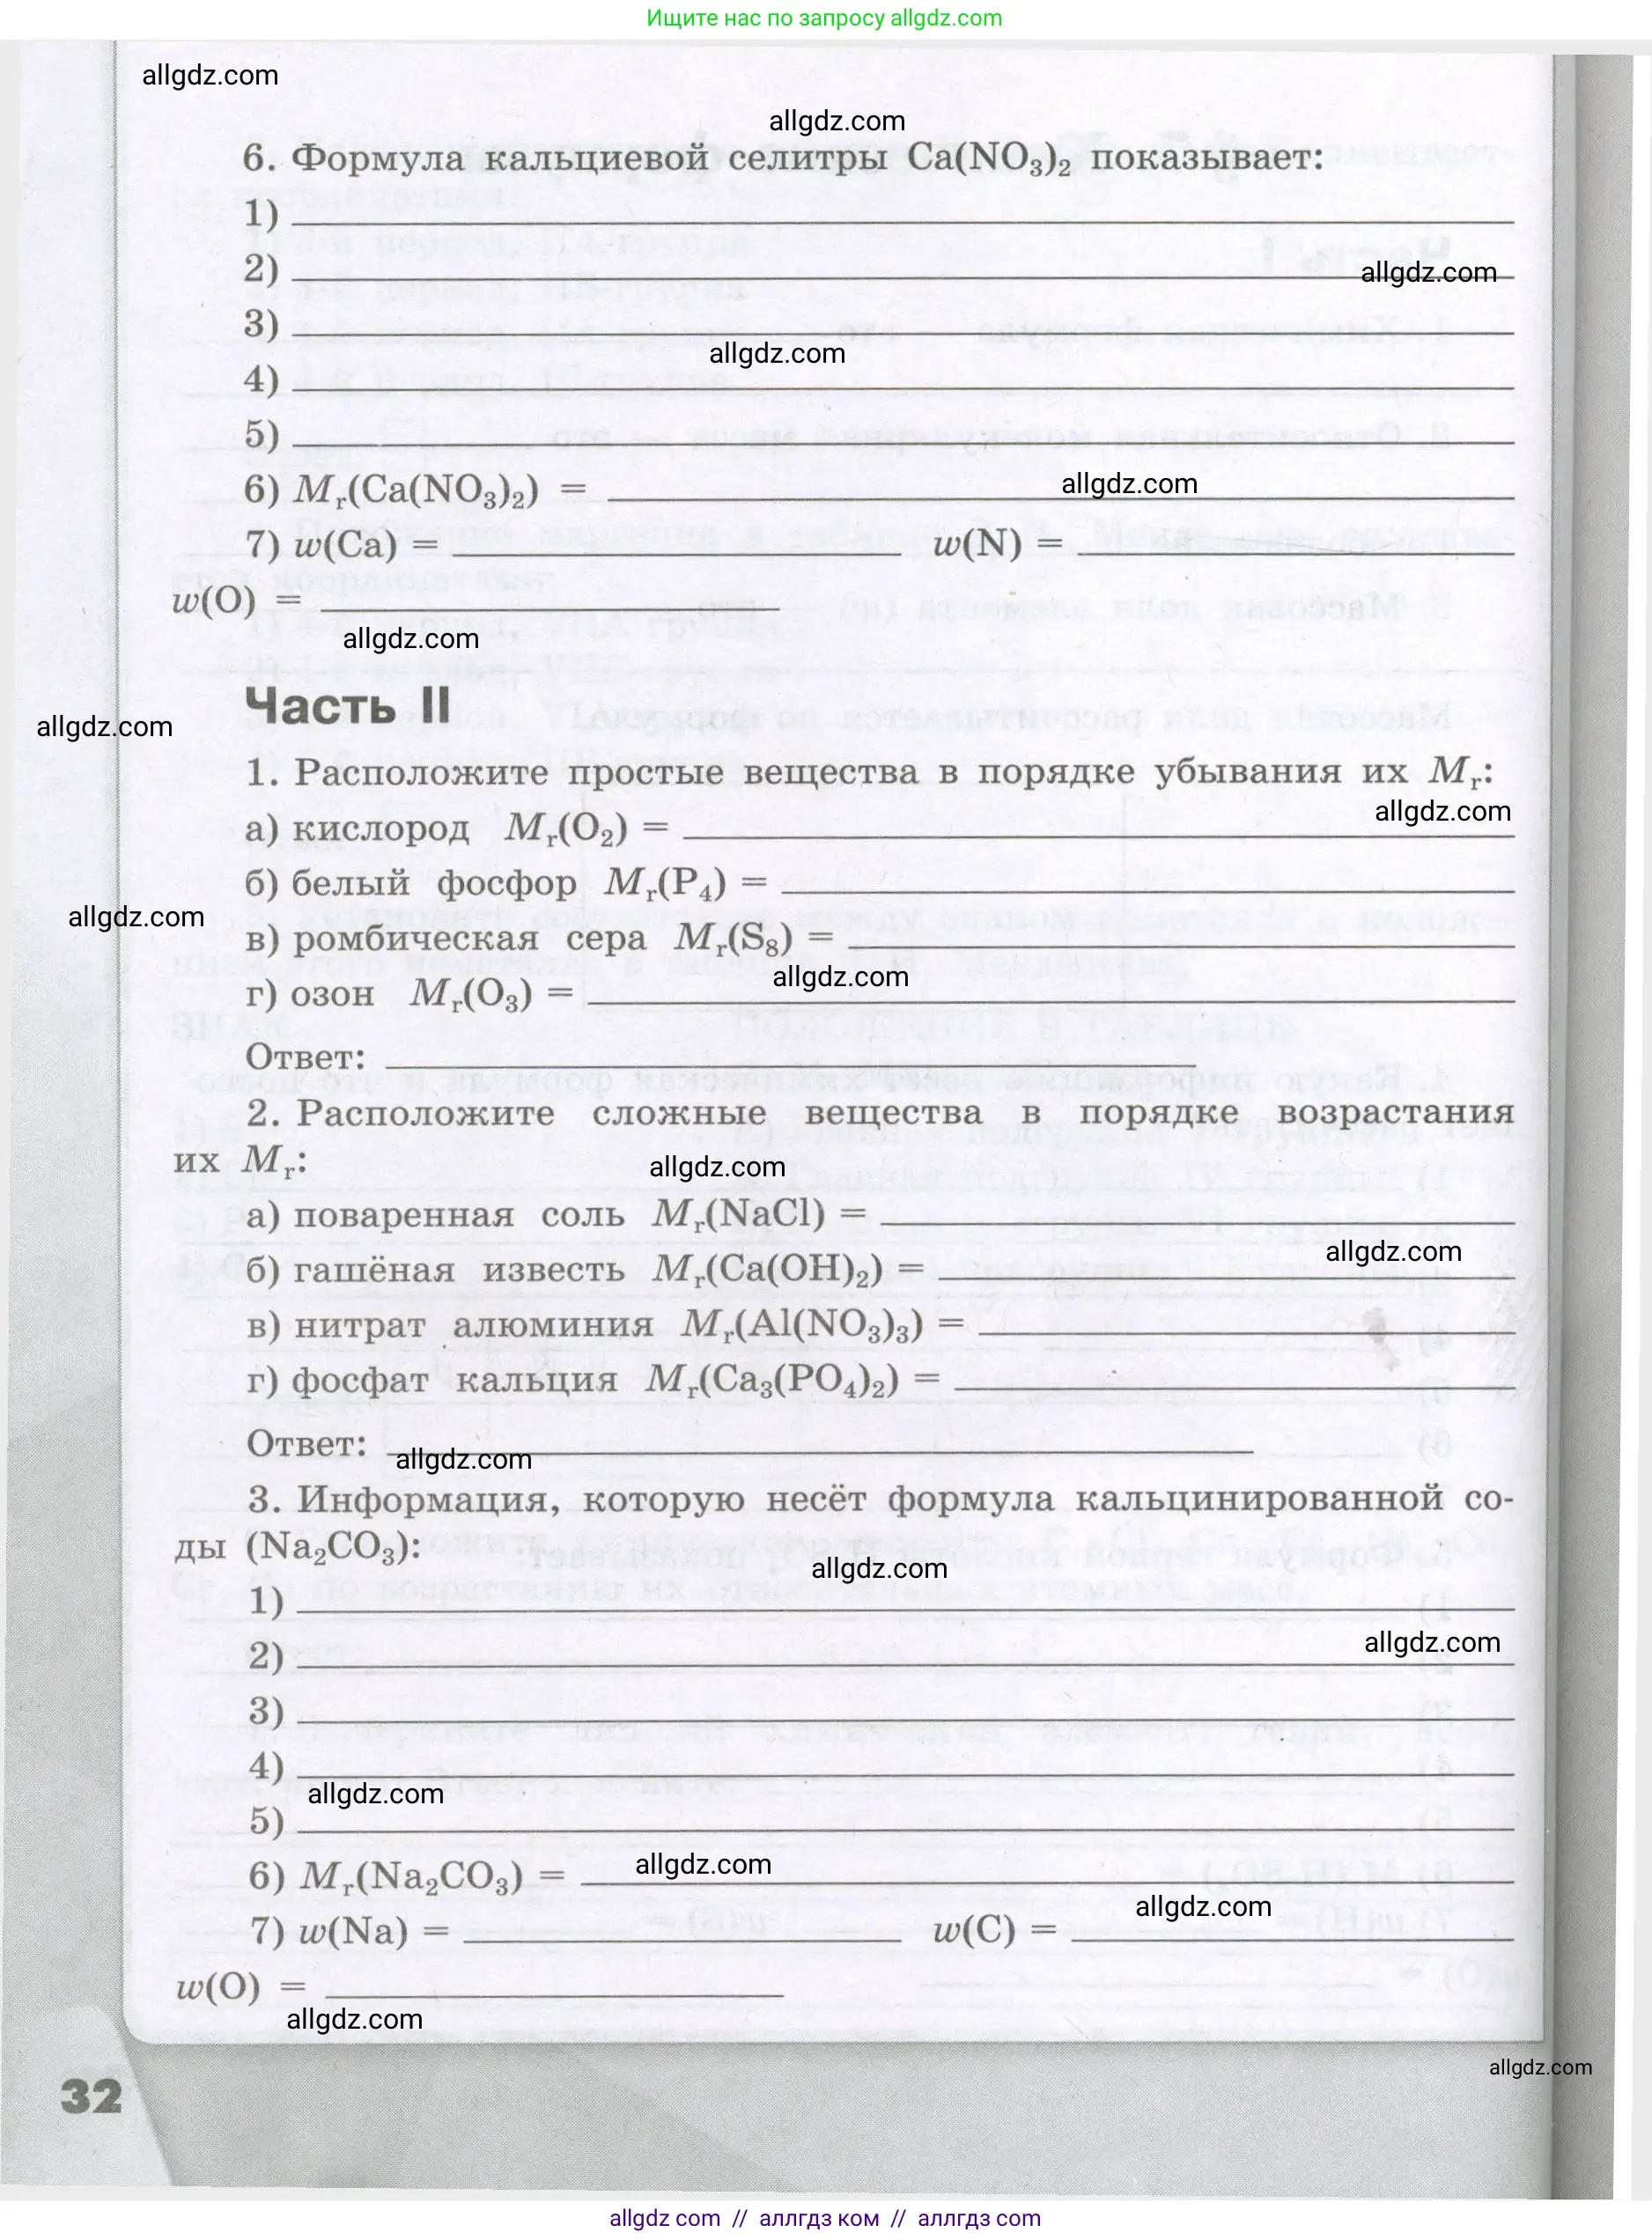 Ищите нас по запросу allgdz.com
allgdz.com
allgdz.com
6. Формула кальциевой селитры Ca(NO₃)₂ показывает:
1)
2)
allgdz.com
3)
allgdz.com
4)
5)
6) Mᵣ(Ca(NO₃)₂) =
allgdz.com
7) w(Ca) = w(N) =
w(O) =
allgdz.com
Часть II
allgdz.com
1. Расположите простые вещества в порядке убывания их Mᵣ:
allgdz.com
а) кислород Mᵣ(O₂) =
б) белый фосфор Mᵣ(P₄) =
allgdz.com
в) ромбическая сера Mᵣ(S₈) =
allgdz.com
г) озон Mᵣ(O₃) =
Ответ:
2. Расположите сложные вещества в порядке возрастания
их Mᵣ:
allgdz.com
а) поваренная соль Mᵣ(NaCl) =
allgdz.com
б) гашёная известь Mᵣ(Ca(OH)₂) =
в) нитрат алюминия Mᵣ(Al(NO₃)₃) =
г) фосфат кальция Mᵣ(Ca₃(PO₄)₂) =
Ответ:
allgdz.com
3. Информация, которую несёт формула кальцинированной со-
ды (Na₂CO₃):
allgdz.com
1)
allgdz.com
2)
3)
4)
allgdz.com
5)
6) Mᵣ(Na₂CO₃) =
allgdz.com
allgdz.com
7) w(Na) = w(C) =
w(O) =
allgdz.com
allgdz.com
32
allgdz com // аллгдз ком // аллгдз com